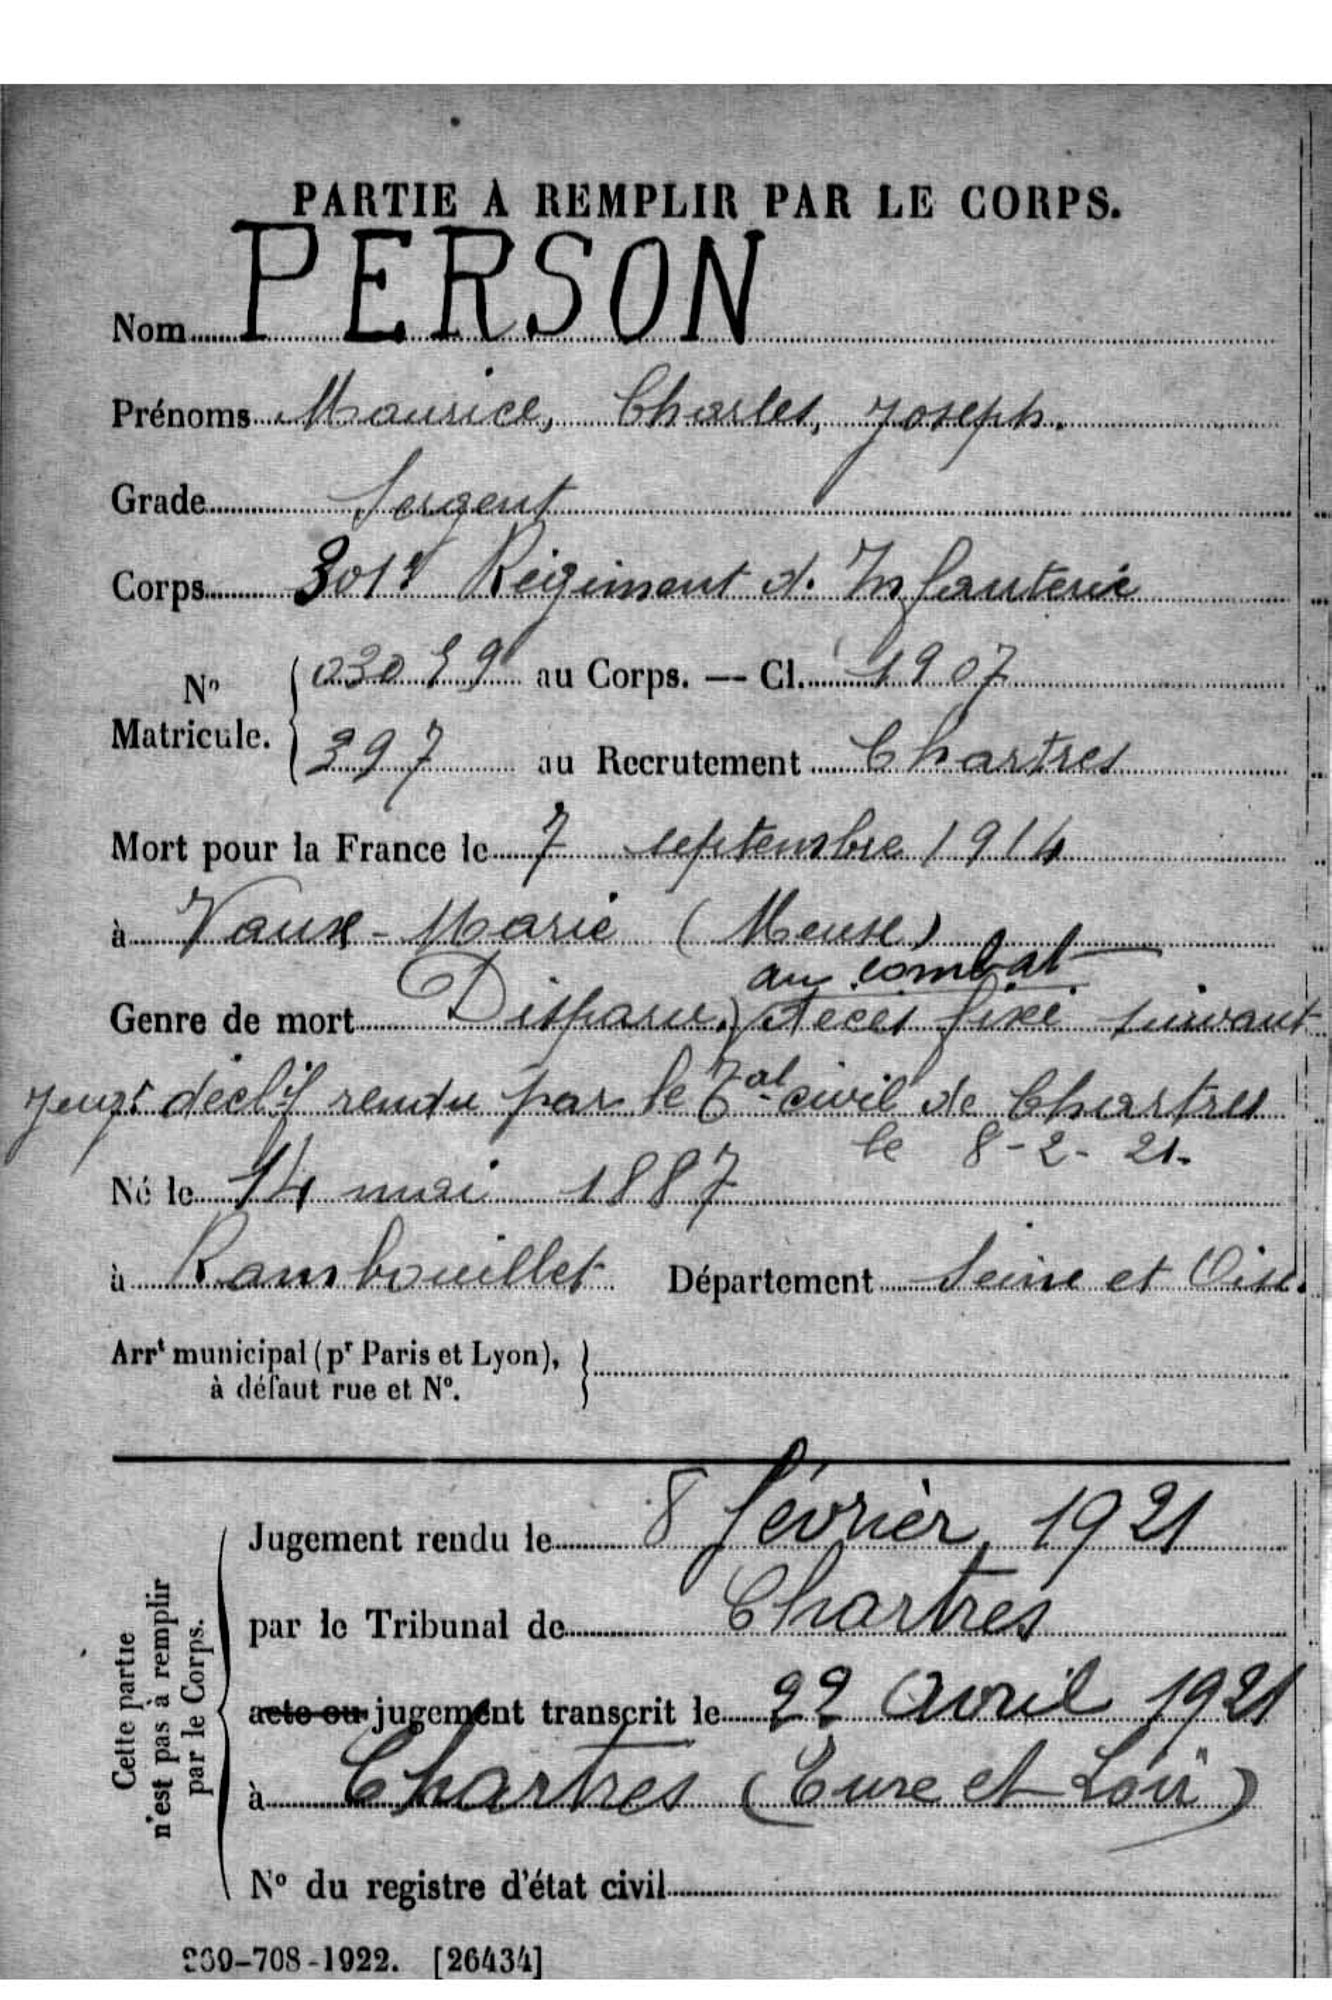 PARTIE À REMPLIR PAR LE CORPS.
Nom PERSON
Prénoms Maurice, Charles, Joseph.
Grade Sergent
Corps 301e Régiment d. Infanterie
No Matricule. 03059 au Corps. — Cl. 1907
397 au Recrutement Chartres
Mort pour la France le 7 septembre 1914
à Vaux-Marie (Meuse)
au combat
Genre de mort Disparu. Décès fixé suivant
jeugt déclif rendu par le Tal civil de Chartres
le 8-2-21.
Né le 14 mai 1887
à Rambouillet Département Seine et Oise.
Arrt municipal (pr Paris et Lyon),
à défaut rue et No.
Jugement rendu le 8 février 1921
par le Tribunal de Chartres
acte ou jugement transcrit le 22 avril 1921
à Chartres (Eure et Loir)
No du registre d'état civil
Cette partie
n'est pas à remplir
par le Corps.
-708-1922. [26434]